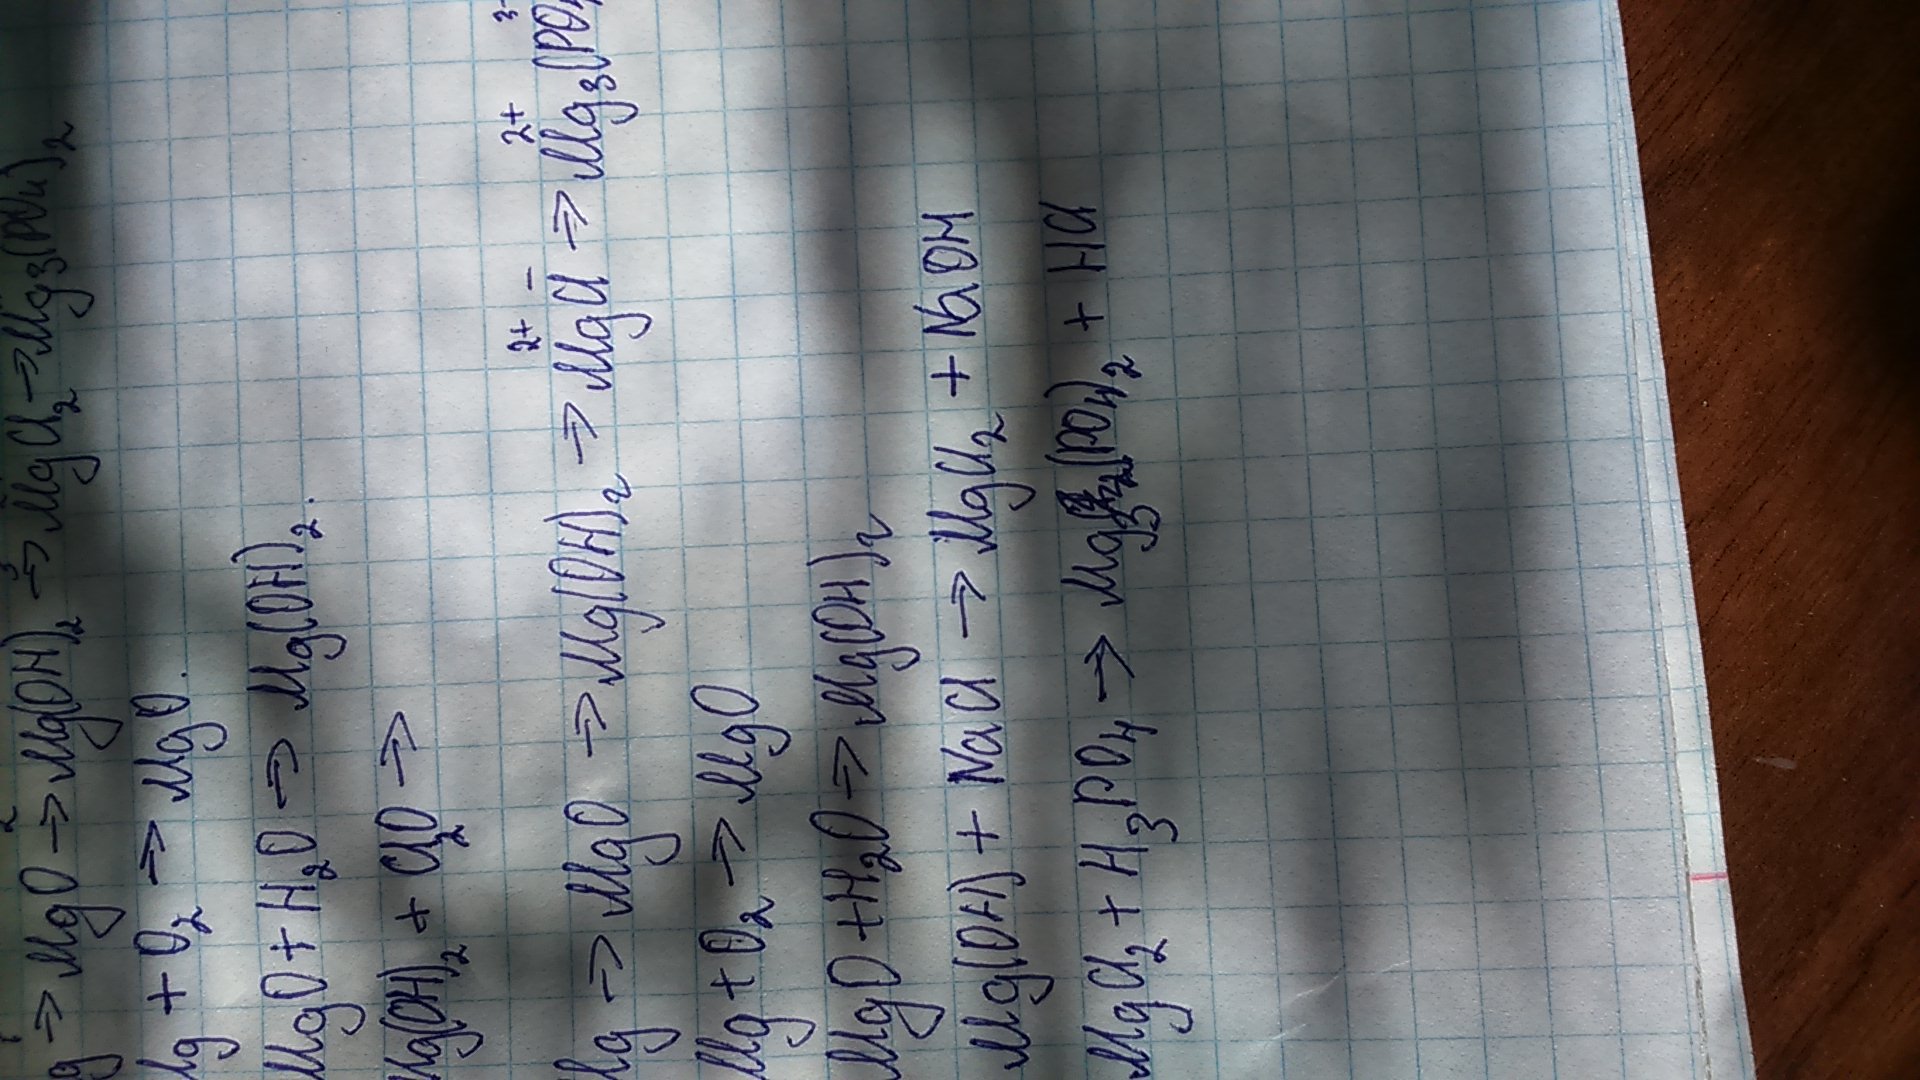 g → MgO → Mg(OH)₂ → MgCl₂ → Mg₃(PO₄)₂
Mg + O₂ → MgO.
MgO + H₂O → Mg(OH)₂.
Mg(OH)₂ + Cl₂O →
Mg → MgO → Mg(OH)₂ → Mg²⁺Cl⁻ → Mg₃²⁺(PO₄³⁻
Mg + O₂ → MgO
MgO + H₂O → Mg(OH)₂
Mg(OH) + NaCl → MgCl₂ + NaOH
MgCl₂ + H₃PO₄ → Mg₃(PO₄)₂ + HCl